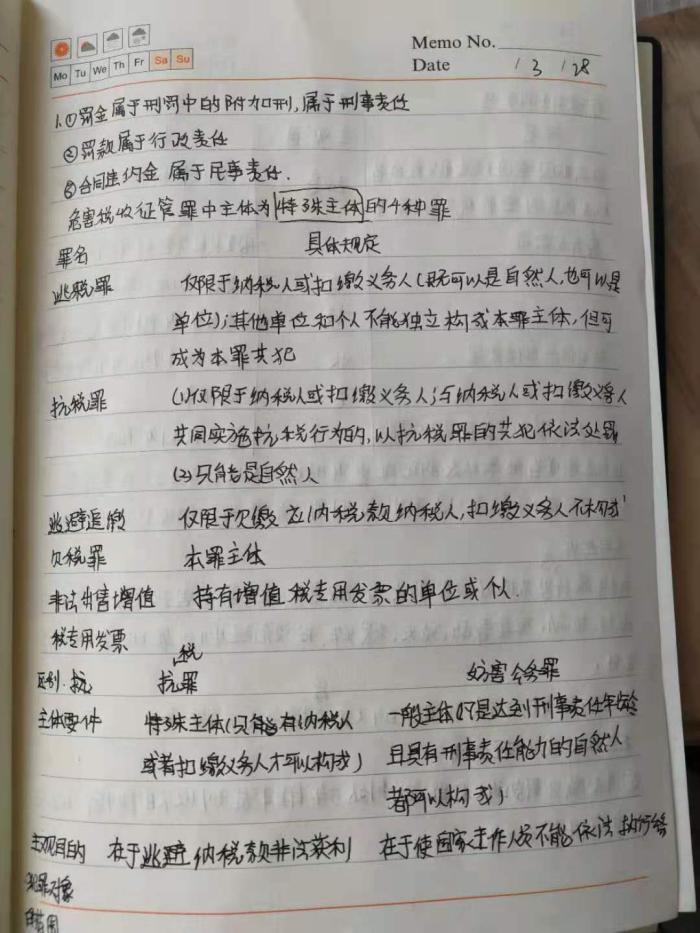 Memo No.
Mo Tu We Th Fr Sa Su
Date 1 3 / 28
1.①罚金属于刑罚中的附加刑,属于刑事责任
②罚款属于行政责任
③合同违约金 属于民事责任.
危害税收征管罪中主体为特殊主体的4种罪
罪名 具体规定
逃税罪 仅限于纳税人或扣缴义务人(既可以是自然人,也可以是
单位);其他单位和个人不能独立构成本罪主体,但可
成为本罪共犯
抗税罪 (1)仅限于纳税人或扣缴义务人;与纳税人或扣缴义务人
共同实施抗税行为的,以抗税罪的共犯依法处罪
(2)只能是自然人
逃避追缴 仅限于欠缴应纳税款纳税人,扣缴义务人不构成
欠税罪 本罪主体
非法出售增值 持有增值税专用发票的单位或个人.
税专用发票
区别.抗 抗税罪 妨害公务罪
主体要件 特殊主体(只能有纳税人 一般主体(只是达到刑事责任年龄
或者扣缴义务人才可以构成) 且具有刑事责任能力的自然人
都可以构成)
主观目的 在于逃避纳税款非法获利 在于使国家工作人员不能依法执行
犯罪对象
范围